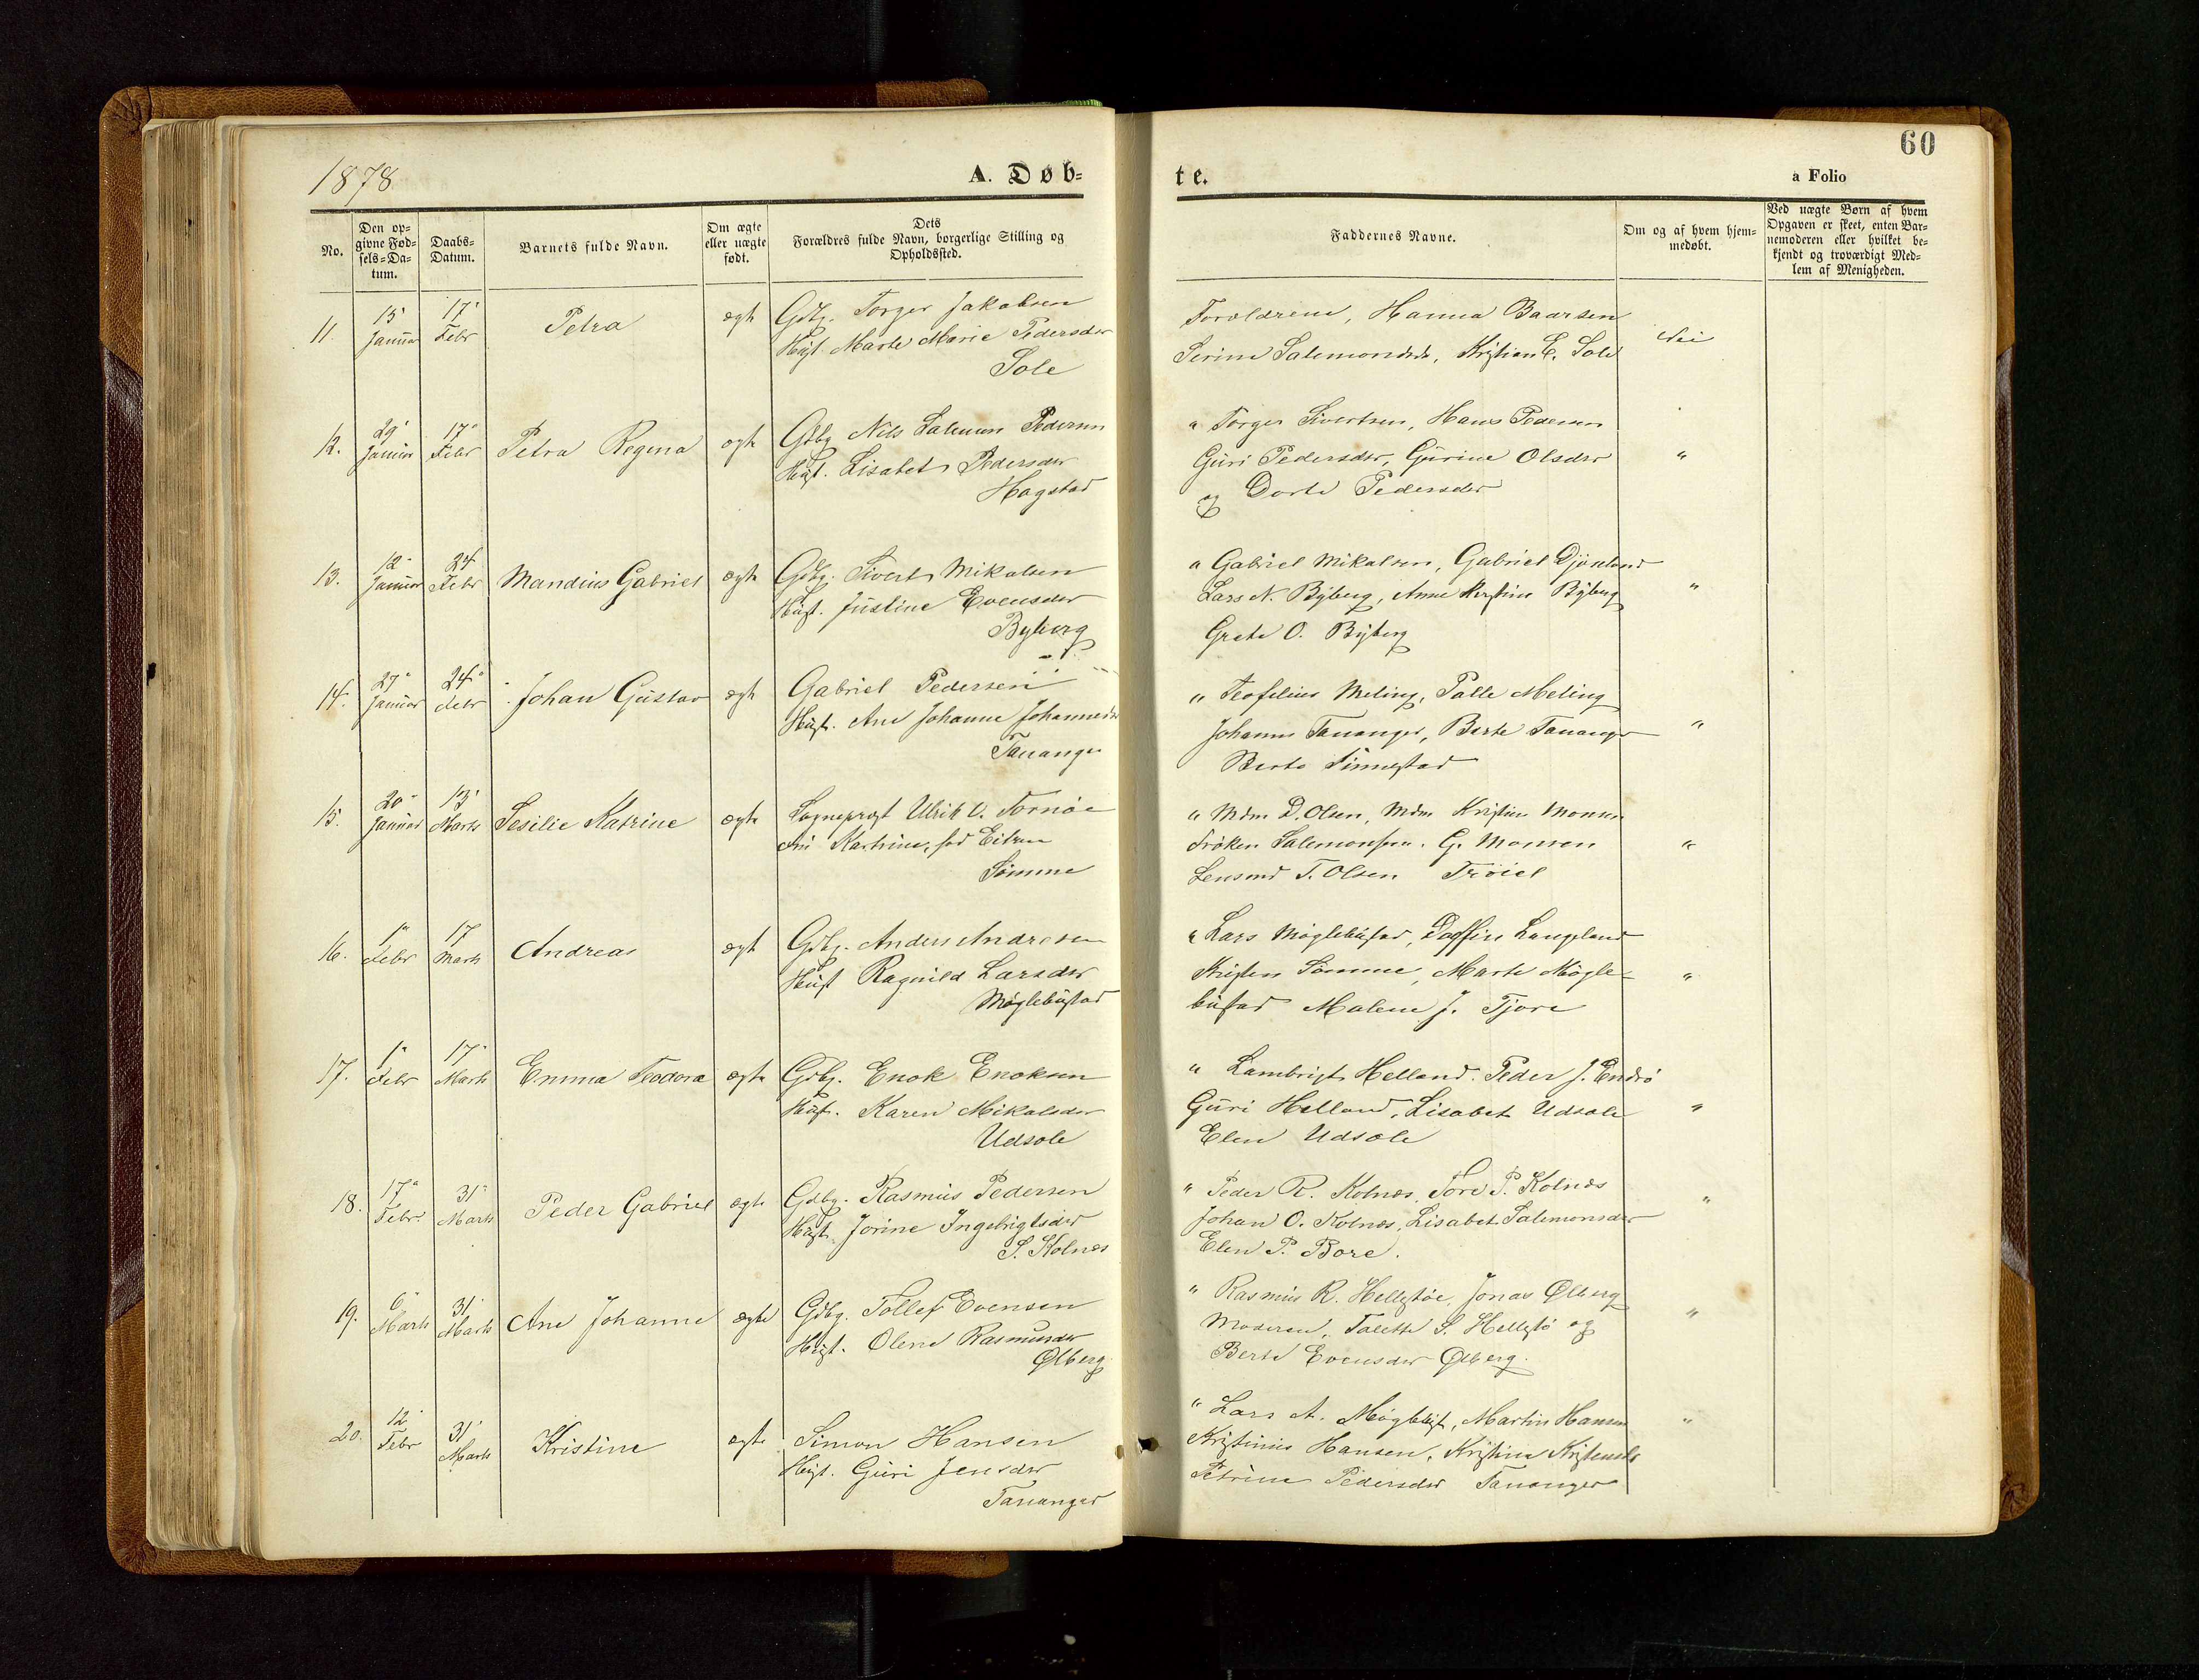 60
1878
A. Døb-
te.
a Folio
No.
Den op-
givne Fød-
sels-Da-
tum.
Daabs-
Datum.
Barnets fulde Navn.
Om ægte
eller uægte
født.
Dets
Forældres fulde Navn, borgerlige Stilling og
Opholdssted.
Faddernes Navne.
Om og af hvem hjem-
medøbt.
Ved uægte Børn af hvem
Opgaven er skeet, enten Bar-
nemoderen eller hvilket be-
kjendt og troværdigt Med-
lem af Menigheden.
11. 15 Januar 17 Febr Petra ægte Gdbg. Torger Jakobsen
Hust. Marte Marie Pedersdr
Sole
Forældrene, Hanna Baarsen
Serine Salemonsdr, Kristian E. Sole
Nei
12. 29 Januar 17 Febr Petra Regina ægte Gdbg Nils Salemon Pedersen
Hust. Lisabet Pedersdr
Hagstad
" Torger Sivertsen, Hans Pedersen
Guri Pedersdr, Gurine Olsdr "
og Dorte Pedersdr
13. 12 Januar 24 Febr Mandius Gabriel ægte Gdbg. Sivert Mikalsen
Hust. Justine Evensdr
Byberg
" Gabriel Mikalsen, Gabriel Djøseland
Lars N. Byberg, Anne Kirstine Byberg "
Grete O. Byberg
14. 27 Januar 24 Febr Johan Gustav ægte Gabriel Pedersen
Hust. Ane Johanne Johannesdr
Tananger
" Teofilius Meling, Palle Meling
Johannes Tananger, Berte Tananger "
Berte Sinnestad
15. 20 Januar 13 Marts Sesilie Katrine ægte Sogneprest Ulrik V. Tornøe
Fru Kathrine, fød Eitzen
Sømme
" Mdm D. Olsen, Mdm Kristine Monsen
Frøken Salemonsen. G. Monsen "
Lensmd T. Olsen Trøiel
16. 1 Febr 17 Marts Andreas ægte Gdbg. Anders Andresen
Hust Ragnild Larsdr
Møglebustad
" Lars Møglebustad, Daffin Langeland
Kristen Sømme, Marte Møgle- "
bustad Malene J. Tjore
17. 1 Febr 17 Marts Emma Teodora ægte Gdbg. Enok Enoksen
Hust. Karen Mikalsdr
Udsole
" Lambrigt Helland. Peder J. Endrø
Guri Helland, Lisabet Udsole "
Elen Udsole
18. 17 Febr. 31 Marts Peder Gabriel ægte Gdbg. Rasmus Pedersen
Hust. Jorine Ingebrigtsdr
S. Kolnes
" Peder R. Kolnes, Tore P. Kolnes
Johan O. Kolnes, Lisabet Salemonsdr "
Elen P. Bore.
19. 6 Marts 31 Marts Ane Johanne ægte Gdbg. Tollef Evensen
Hust. Olene Rasmusdr
Ølberg
" Rasmus R. Hellestøe, Jonas Ølberg
Moderen, Talette S. Hellestø og "
Berte Evensdr Ølberg.
20. 12 Febr 31 Marts Kristine ægte Simon Hansen
Hust. Guri Jensdr
Tananger
" Lars A. Møglebust, Martin Hansen "
Kristinius Hansen, Kristine Kristensdr
Petrine Pedersdr Tananger